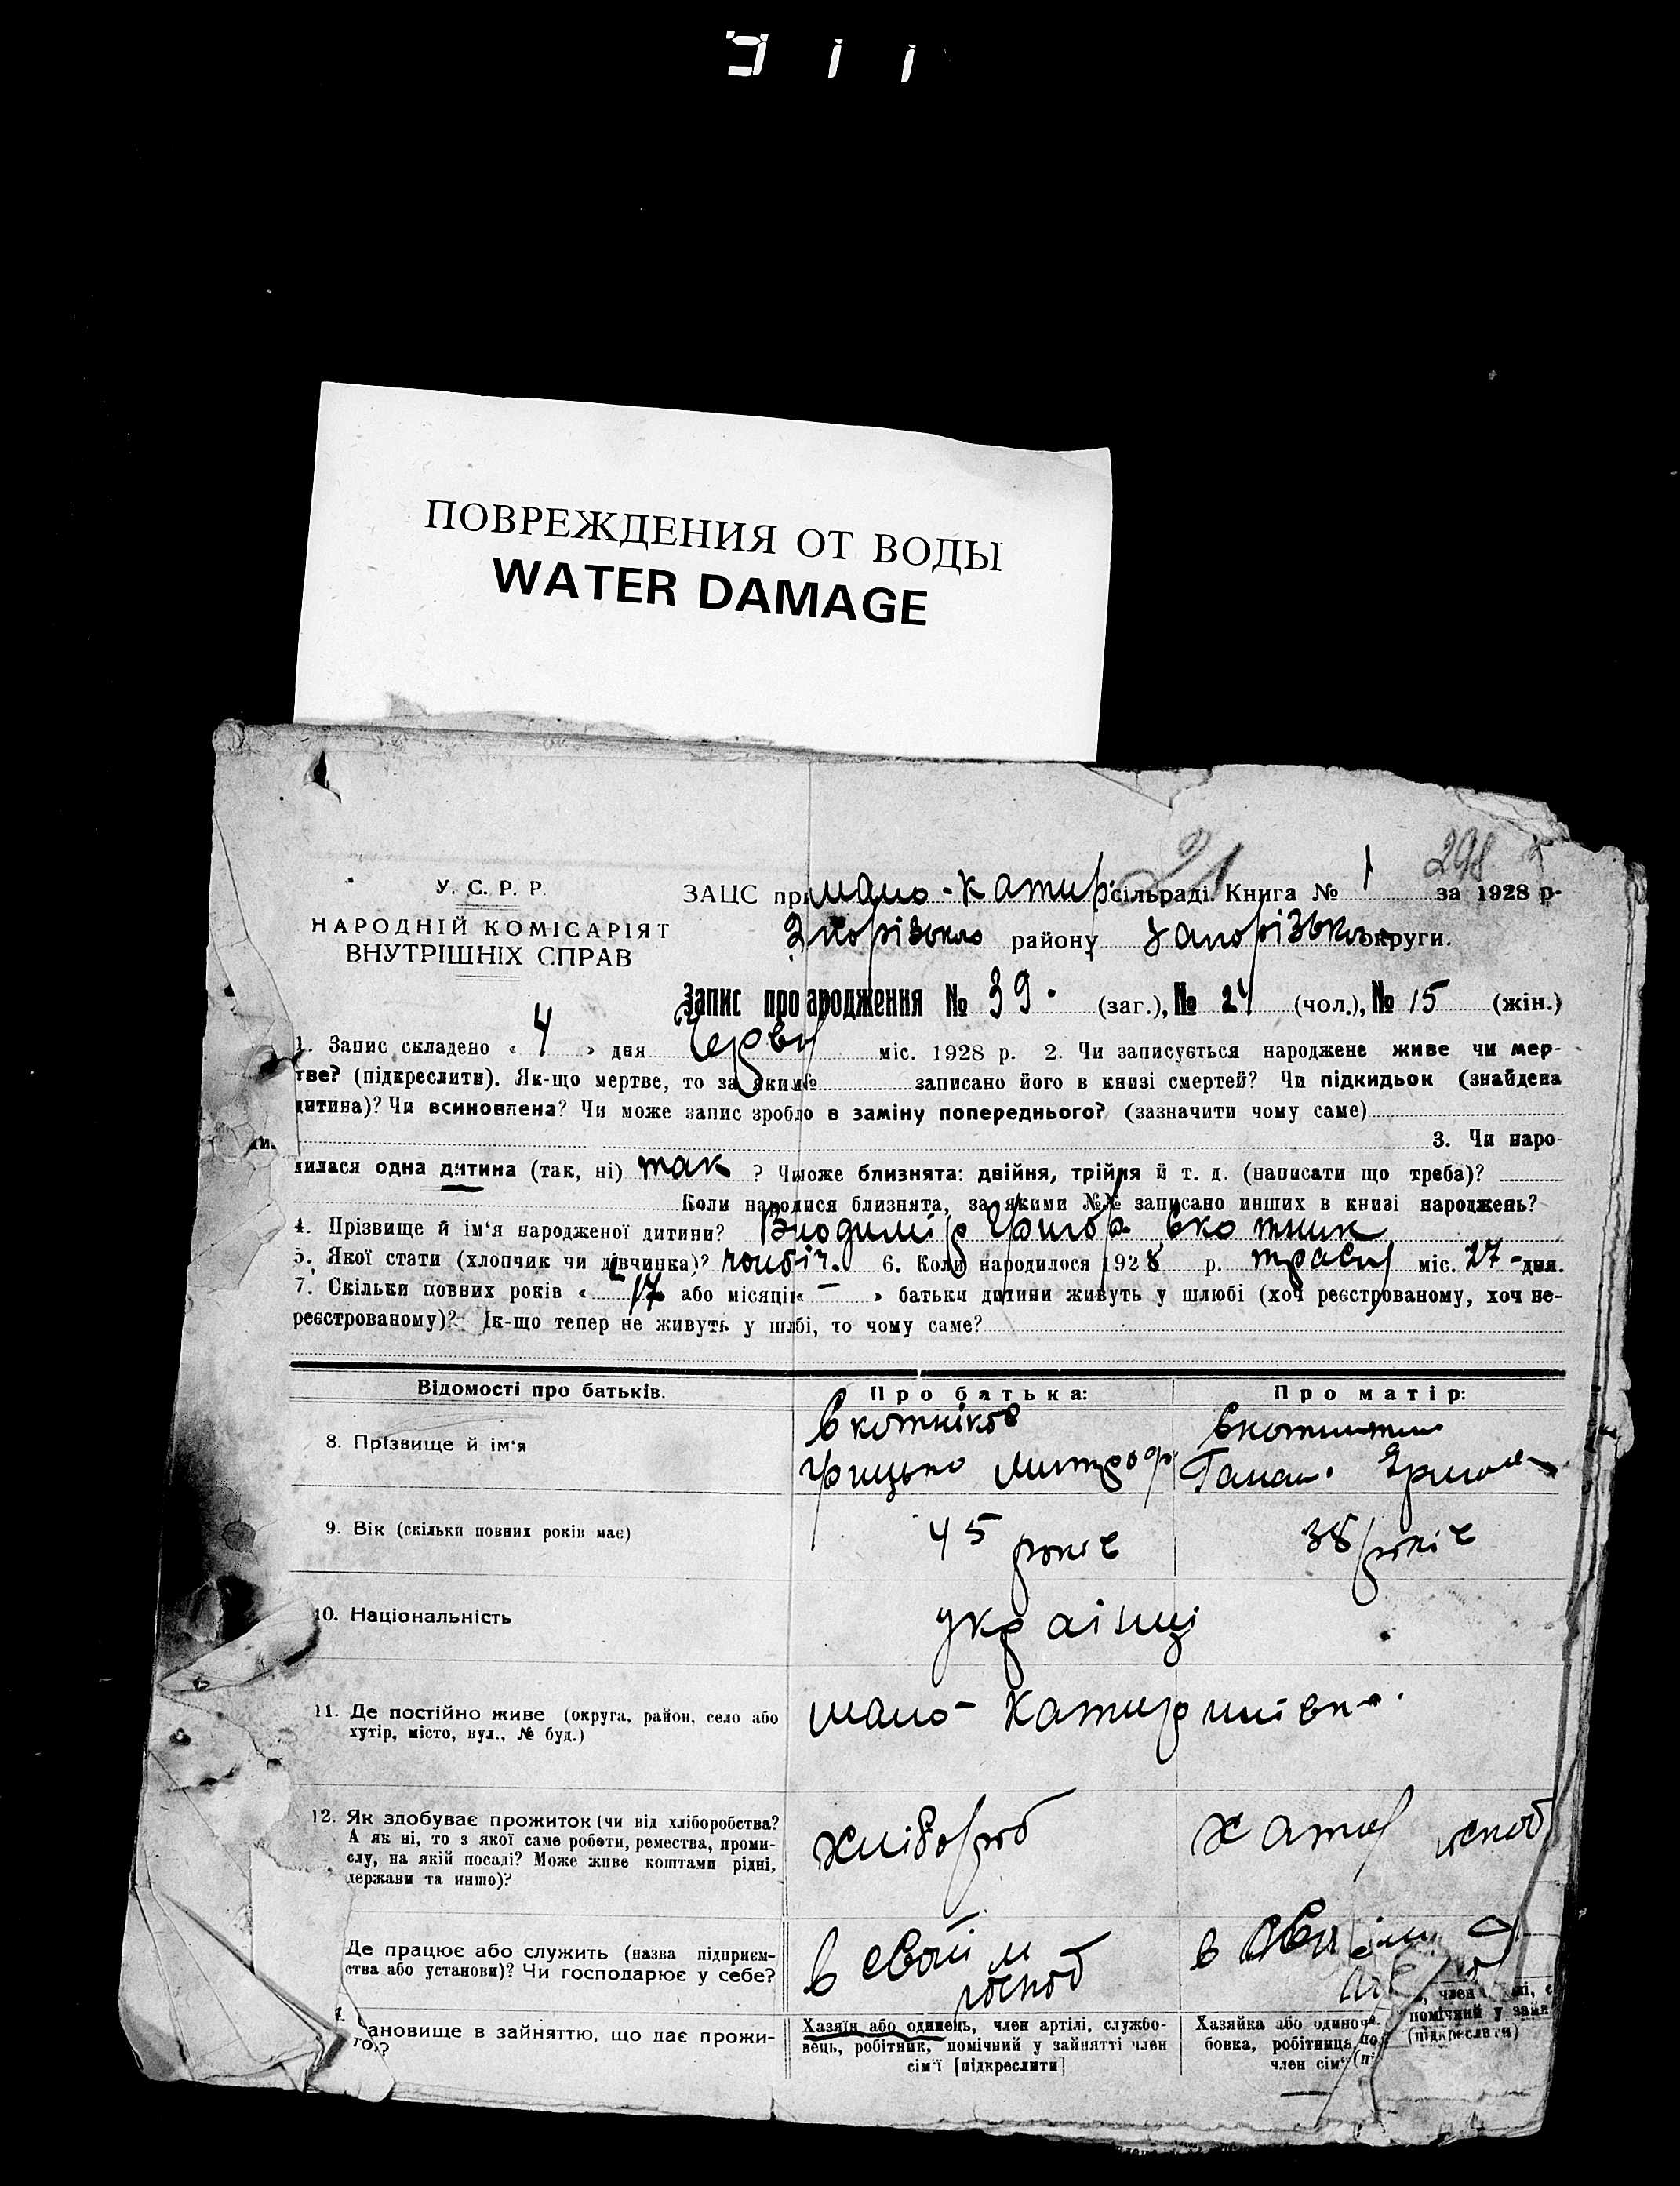 ПОВРЕЖДЕНИЯ ОТ ВОДЫ
WATER DAMAGE
298
21
У. С. Р. Р.
НАРОДНІЙ КОМІСАРІЯТ
ВНУТРІШНІХ СПРАВ
ЗАЦС при мало-Катир. сільраді. Книга № 1 за 1928 р.
району Запорізько округи.
Запис про ародження № 39. (заг.), № 24 (чол.), № 15 (жін.)
1. Запис складено « 4 » дня Червн міс. 1928 р. 2. Чи записується народжене живе чи мер-
тве? (підкреслити). Як-що мертве, то за яким № записано його в книзі смертей? Чи підкидьок (знайдена
дитина)? Чи всиновлена? Чи може запис зробло в заміну попереднього? (зазначити чому саме)
3. Чи наро-
дилася одна дитина (так, ні) так ? Чи може близнята: двійня, трійня й т. д. (написати що треба)?
Коли народися близнята, за якими №№ записано инших в книзі народжень?
4. Прізвище й ім'я народженої дитини? Володимір Григор.
5. Якої стати (хлопчик чи дівчинка)? чолбіч. 6. Коли народилося 1928 р. травн міс. 27 - дня.
7. Скільки повних років « 17 або місяців « — » батьки дитини живуть у шлюбі (хоч реєстрованому, хоч не-
реєстрованому)? Як-що тепер не живуть у шлбі, то чому саме?
Відомості про батьків. Про батька: Про матір:
8. Прізвище й ім'я
Грицько Митроф Ганна
9. Вік (скільки повних років має) 45 років 38 років
10. Національність українці
11. Де постійно живе (округа, район, село або
хутір, місто, вул., № буд.)
мало-Катиринівка.
12. Як здобуває прожиток (чи від хліборобства?
А як ні, то з якої саме роботи, ремества, проми-
слу, на якій посаді? Може живе коштами рідні,
держави та иншо)?
хлібороб хатн госпоб
Де працює або служить (назва підприєм-
ства або установи)? Чи господарює у себе?
в своїм госпоб
в своїм
ановище в зайняттю, що дає прожи-
то)?
Хазяїн або одинець, член артілі, службо-
вець, робітник, помічний у зайнятті член
сім'ї [підкреслити]
Хазяйка або одиноч
бовка, робітниця, по
член сім'
помічний у зайн
(підкреслити)